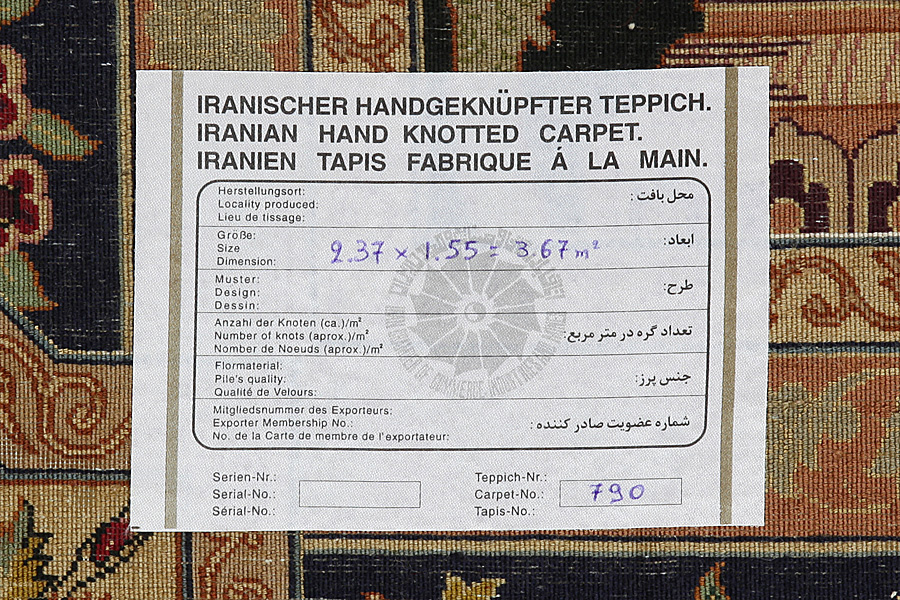 IRANISCHER HANDGEKNÜPFTER TEPPICH.
IRANIAN HAND KNOTTED CARPET.
IRANIEN TAPIS FABRIQUE Á LA MAIN.
Herstellungsort:
Locality produced:
Lieu de tissage:
محل بافت :
Größe:
Size
Dimension:
2.37 × 1.55 = 3.67 m²
ابعاد:
Muster:
Design:
Dessin:
طرح:
Anzahl der Knoten (ca.)/m²
Number of knots (aprox.)/m²
Nomber de Noeuds (aprox.)/m²
تعداد گره در متر مربع:
Flormaterial:
Pile's quality:
Qualité de Velours:
جنس پرز:
Mitgliedsnummer des Exporteurs:
Exporter Membership No.:
No. de la Carte de membre de l'exportateur:
شماره عضویت صادر کننده :
Serien-Nr.:
Serial-No.:
Sérial-No.:
Teppich-Nr.:
Carpet-No.:
Tapis-No.:
790